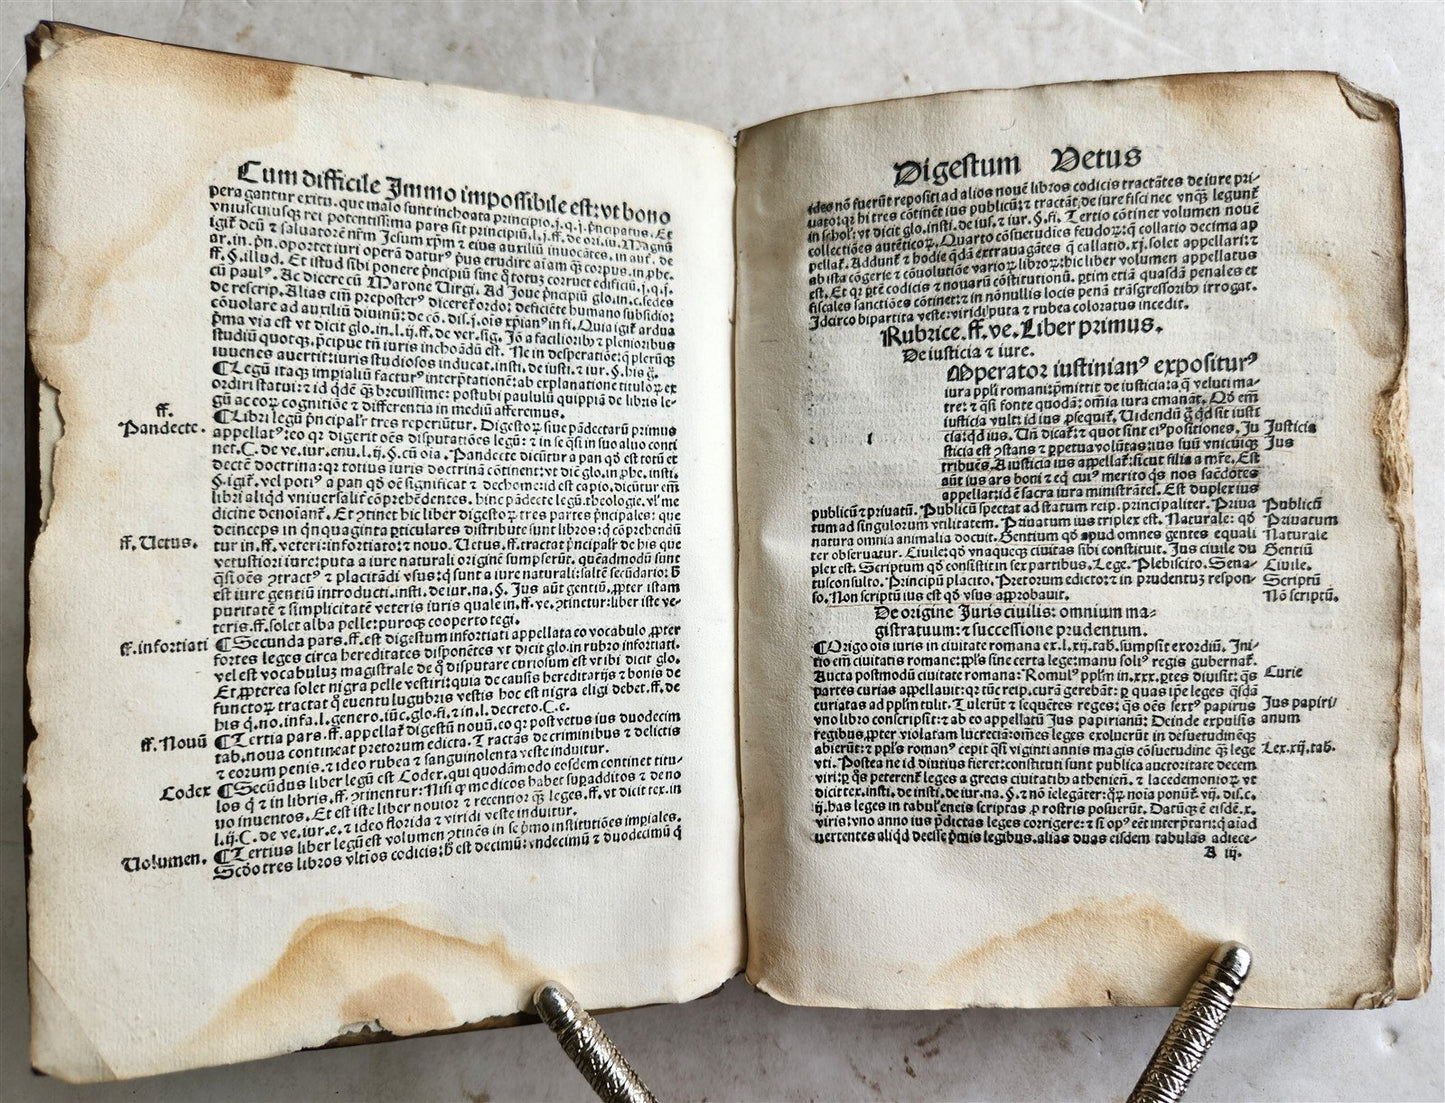 Cum difficile Immo impossibile est: vt bono
pera gantur exitu. que malo sunt inchoata principio. j. q. j. pͥncipatus. Et
vniuscuiusqꝫ rei potentissima pars sit principiū. l. j. ff. de ori. iu. Magnū
igit᷑ deū ⁊ saluatorē nr̄m Jesum xp̄m ⁊ eius auxiliū inuocātes. in aut̄. de
ar. in. pn̄. oportet iuri operā daturꝰ pͥus erudire aīam qͣꝫ corpus. in ꝓhe.
ff. §. illud. Et istud sibi ponere pͥncipiū sine qͦ totuꝫ corruet edificiū. j. q. j.
cū paulꝰ. Ac dicere cū Marone Uirgi. Ad Joue pͥncipiū glo. in. c. sedes
de rescrip. Alias em̄ preposterꝰ diceret᷑ ordo: deficiēte humano subsidio:
cōuolare ad auxiliū diuinū: de cō. dis. j. oīs xp̄ianꝰ in fi. Quia igit᷑ ardua
pͥma via est vt dicit glo. in. l. ij. ff. de ver. sig. Jō a facilioribꝰ ⁊ plenioribus
studiū quotqꝫ. pͥcipue tn̄ iuris inchoādū est. Ne in desperatiōe: q̄ plerūqꝫ
iuuenes auertit: iuris studiosos inducat. insti. de iusti. ⁊ iur. §. his gͣ.
¶ Legū itaqꝫ impialiū facturꝰ interpͥtationē: ab explanatione tituloꝝ ex
ordiri statui: ⁊ id qͥdē qͣꝫ breuissime: postubi paululū quippiā de libris le-
gū ac eoꝝ cognitiōe ⁊ differentia in mediū afferemus.
ff.
Pandecte.
¶ Libri legū pͥncipalr̄ tres reperiūtur. Digestoꝝ siue pādectarū primus
appellatꝰ: eo ꝙ digerit oēs disputatiōes legū: ⁊ in se qͣsi in suo aluo conti
net. C. de ve. iur. enu. l. ij. §. cū oīa. Pandecte dicūtur a pan qd̄ est totū et
dectē doctrina: ꝙ totius iuris doctrinā cōtinent: vt dic̄ glo. in ꝓhe. insti.
§. igit᷑. vel potiꝰ a pan qd̄ oē significat ⁊ dechome: id est capio. dicūtur em̄
libri aliqd̄ vniuersalit᷑ cōprehēdentes. hinc pādecte legū. theologie. vl' me
dicine denoīant᷑. Et ꝯtinet hic liber digestoꝝ tres partes pͥncipales: que
deinceps in qͥnquaginta ꝑticulares distribute sunt libros: qͥ cōprehendū
ff. Uetus.
tur in. ff. veteri: infortiato: ⁊ nouo. Uetus. ff. tractat pͥncipalr̄ de his que
vetustiori iure: puta a iure naturali originē sumpserūt. quēadmodū sunt
qͣsi oēs ꝯtractꝰ ⁊ placitādi vsus: qͥ sunt a iure naturali: saltē secūdario: hͦ
est iure gentiū introducti. insti. de iur. na. §. Jus aūt gentiū. ꝓpter istam
puritatē ⁊ simplicitatē veteris iuris quale in. ff. ve. ꝯtinetur: liber iste ve-
teris. ff. solet alba pelle: puroqꝫ cooperto tegi.
ff. infortiati
¶ Secunda pars. ff. est digestum infortiati appellata eo vocabulo ꝓpter
fortes leges circa hereditates disponētes vt dicit glo. in rubro infortiati.
vel est vocabuluꝫ magistrale de qͦ disputare curiosum est vt ibi dicit glo.
Et ꝓpterea solet nigra pelle vestiri: quia de causis hereditarijs ⁊ bonis de
functoꝝ tractat qͦ euentu lugubris vestis hoc est nigra eligi debet. ff. de
his q. no. infa. l. genero. iūc. glo. fi. ⁊ in. l. decreto. C. e.
ff. Nouū
¶ Tertia pars. ff. appellat᷑ digestū nouū. eo ꝙ post vetus ius duodecim
tab. noua contineat pretorum edicta. Tractās de criminibus ⁊ delictis
⁊ eorum penis. ⁊ ideo rubea ⁊ sanguinolenta veste induitur.
Codex
¶ Secūdus liber legū est Codex. qui quodāmodo eosdem continet titu-
los qͥ ⁊ in libris. ff. ꝯtinentur: Nisi ꝙ medicos habet supͣadditos ⁊ de no
uo inuentos. Et est iste liber nouior ⁊ recentior qͣꝫ leges. ff. vt dicit tex. in
l. ij. C. de ve. iur. e. ⁊ ideo florida ⁊ viridi veste induitur.
Uolumen.
¶ Tertius liber legū est volumen ꝯtinēs in se pͥmo institutiōes impiales.
Scd̄o tres libros vltīos codicis: hͦ est decimū: vndecimū ⁊ duodecimū qͥ
Digestum Uetus
ides nō fuerūt repositi ad alios nouē libros codicis tractātes de iure pri-
uato: ꝙ hi tres cōtinēt ius publicū: ⁊ tractāt de iure fisci nec vnqͣꝫ legunt᷑
in schol': vt dicit glo. insti. de ius. ⁊ iur. §. fi. Tertio cōtinet volumen nouē
collectiōes autēticoꝝ. Quarto cōsuetudies feudoꝝ: q̄ collatio decima ap
pellat᷑. Addunt᷑ ⁊ hodie qͥdā extrauagātes q̄ collatio. xj. solet appellari: ⁊
ab ista cōgerie ⁊ cōuolutiōe varioꝝ libroꝝ: hic liber volumen appellatus
est. Et ꝙ ꝑtē codicis ⁊ nouarū cōstitutionū. pͥtim etiā quasdā penales et
fiscales sanctiōes cōtinet: ⁊ in nōnullis locis penā trāsgressoribꝰ irrogat.
Idcirco bipartita veste: viridi puta ⁊ rubea coloratus incedit.
Rubrice. ff. ve. Liber primus.
De iusticia ⁊ iure.
Mperator iustinianꝰ expositurꝰ
iura ppl̄i romani: pͥmittit de iusticia: a qͣ veluti ma-
tre: ⁊ qͣsi fonte quodā: om̄ia iura emanāt. Qd̄ em̄
iusticia vult: id ius ꝓsequit᷑. Uidendū gͦ qd̄ sit iusti
cia: qd̄ ius. Un̄ dicat᷑: ⁊ quot sint eiꝰ positiones. Ju
Justicia
sticia est ꝯstans ⁊ ꝑpetua volūtas: ius suū vnicuiqꝫ
Jus
tribuēs. A iusticia ius appellat᷑: sicut filia a mr̄e. Est
aūt ius ars boni ⁊ eqͥ cuiꝰ merito qͥs nos sacēdotes
appellat: id ē sacra iura ministrātes. Est duplex ius
publicū ⁊ priuatū. Publicū spectat ad statum reip. principaliter. Priua
Publicū
tum ad singulorum vtilitatem. Priuatum ius triplex est. Naturale: qd̄
Priuatum
natura omnia animalia docuit. Gentium qd̄ apud omnes gentes equali
Naturale
ter obseruatur. Ciuile: qd̄ vnaqueqꝫ ciuitas sibi constituit. Jus ciuile du
Gentiū
plex est. Scriptum qd̄ consistit in sex partibus. Lege. Plebiscito. Sena-
Ciuile.
tusconsulto. Principū placito. Pretorum edicto: ⁊ in prudentuꝫ respon-
Scriptū
so. Non scriptū ius est qd̄ vsus approbauit.
Nō scriptū.
De origine Juris ciuilis: omnium ma-
gistratuum: ⁊ successione prudentum.
¶ Origo oīs iuris in ciuitate romana ex. l. xij. tab. sumpsit exordiū. Ini-
tio em̄ ciuitatis romane: ppl̄s sine certa lege: manu soliꝰ regis gubernat᷑.
Aucta postmodū ciuitate romana: Romulꝰ ppl̄m in. xxx. ꝑtes diuisit: qͣs
Curie
partes curias appellauit: ꝙ tūc reip. curā gerebāt: ꝑ quas ip̄e leges qͣsdā
curiatas ad ppl̄m tulit. Tulerūt ⁊ sequētes reges: qͣs oēs sextꝰ papirus
Jus papiri/
vno libro conscripsit: ⁊ ab eo appellatū Jus papirianū: Deinde expulsis
anum
regibus. ꝓpter violatam lucreciā: om̄es leges exoluerūt in desuetudinē qͣꝫ
abierūt: ⁊ ppl̄s romanꝰ cepit qͣsi viginti annis magis cōsuetudine qͣꝫ lege
Lex. xij. tab.
vti. Postea ne id diutius fieret: constituti sunt publica auctoritate decem
viri: ꝑ qͦs peterent᷑ leges a grecis ciuitatibꝰ atheniēn. ⁊ lacedemonioꝝ vt
dicit tex. insti. de insti. de iur. na. §. ⁊ nō īelegāter: qͦꝝ noīa ponūt᷑. vij. dis. c.
ij. has leges in tabul' eneis scriptas ꝓ rostris posuerūt. Datūqꝫ ē eisdē. x.
viris: vno anno ius pͥdictas leges corrigere: ⁊ si opꝰ eēt interpͥtari: q̄ aīad
uertentes aliqd̄ deesse pͥmis legibus. alias duas eisdem tabulas adiece-
A iij.